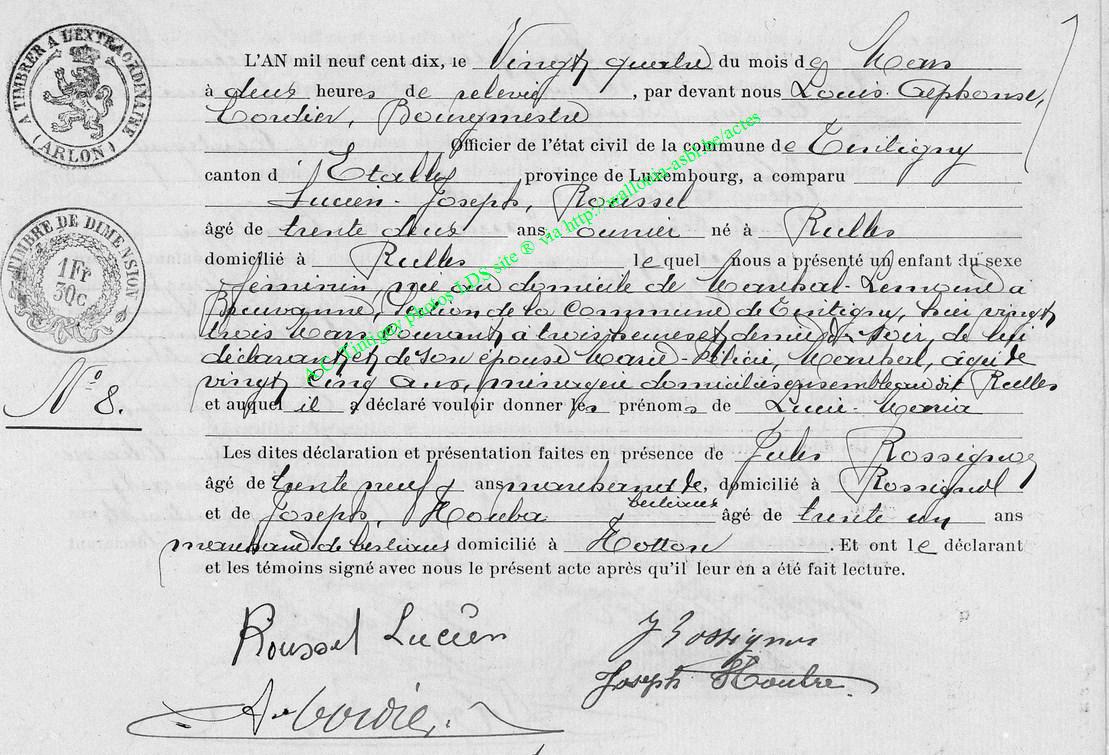 A TIMBRER A L'EXTRAORDINAIRE
(ARLON)
L'AN mil neuf cent dix, le Vingt quatre du mois de Mars
à deux heures de relevée, par devant nous Louis Alphonse,
Cordier, Bourgmestre
Officier de l'état civil de la commune de Tintigny
canton d'Etalle, province de Luxembourg, a comparu
Lucien-Joseph, Roussel
âgé de trente deux ans ouvrier né à Rulles
TIMBRE DE DIMENSION
1 Fr
30c
domicilié à Rulles lequel nous a présenté un enfant du sexe
feminin, née au domicile de Maréhal-Lemoine a
Breuvanne, Section de la Commune de Tintigny, hier vingt
trois Mars courant à trois heures et demie du soir, de lui
déclarant et de son épouse Marie-Félicie, Maréhal, agée de
vingt cinq ans, ménagère domiciliés ensemble au dit Rulles
N° 8.
et auquel il a déclaré vouloir donner les prénoms de Lucie-Maria
Les dites déclaration et présentation faites en présence de Jules Rossignon
âgé de trente neuf ans marchand de bestiaux, domicilié à Rossignol
et de Joseph, Houba âgé de trente un ans
marchand de bestiaux domicilié à Hotton. Et ont le déclarant
et les témoins signé avec nous le présent acte après qu'il leur en a été fait lecture.
Roussel Lucien
J Rossignon
Joseph Houba
A Cordier
A.C. Tintigny photos LDS site ® via http://wallonia-asbl.be/actes